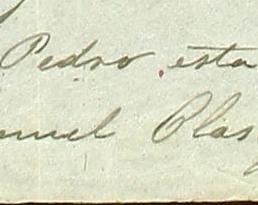 Pedro esta
nuel Blas